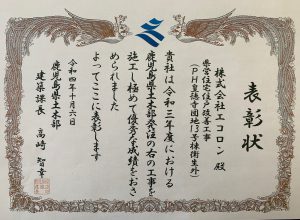 表彰状
株式会社エコロン 殿
県営住宅住戸改善工事
(PH皇徳寺団地13号棟衛生外)
貴社は令和三年度における
鹿児島県土木部発注の右の工事を
施工し極めて優秀な成績をおさ
められました
よってここに表彰します
令和四年十月六日
鹿児島県土木部
建築課長 高崎智幸